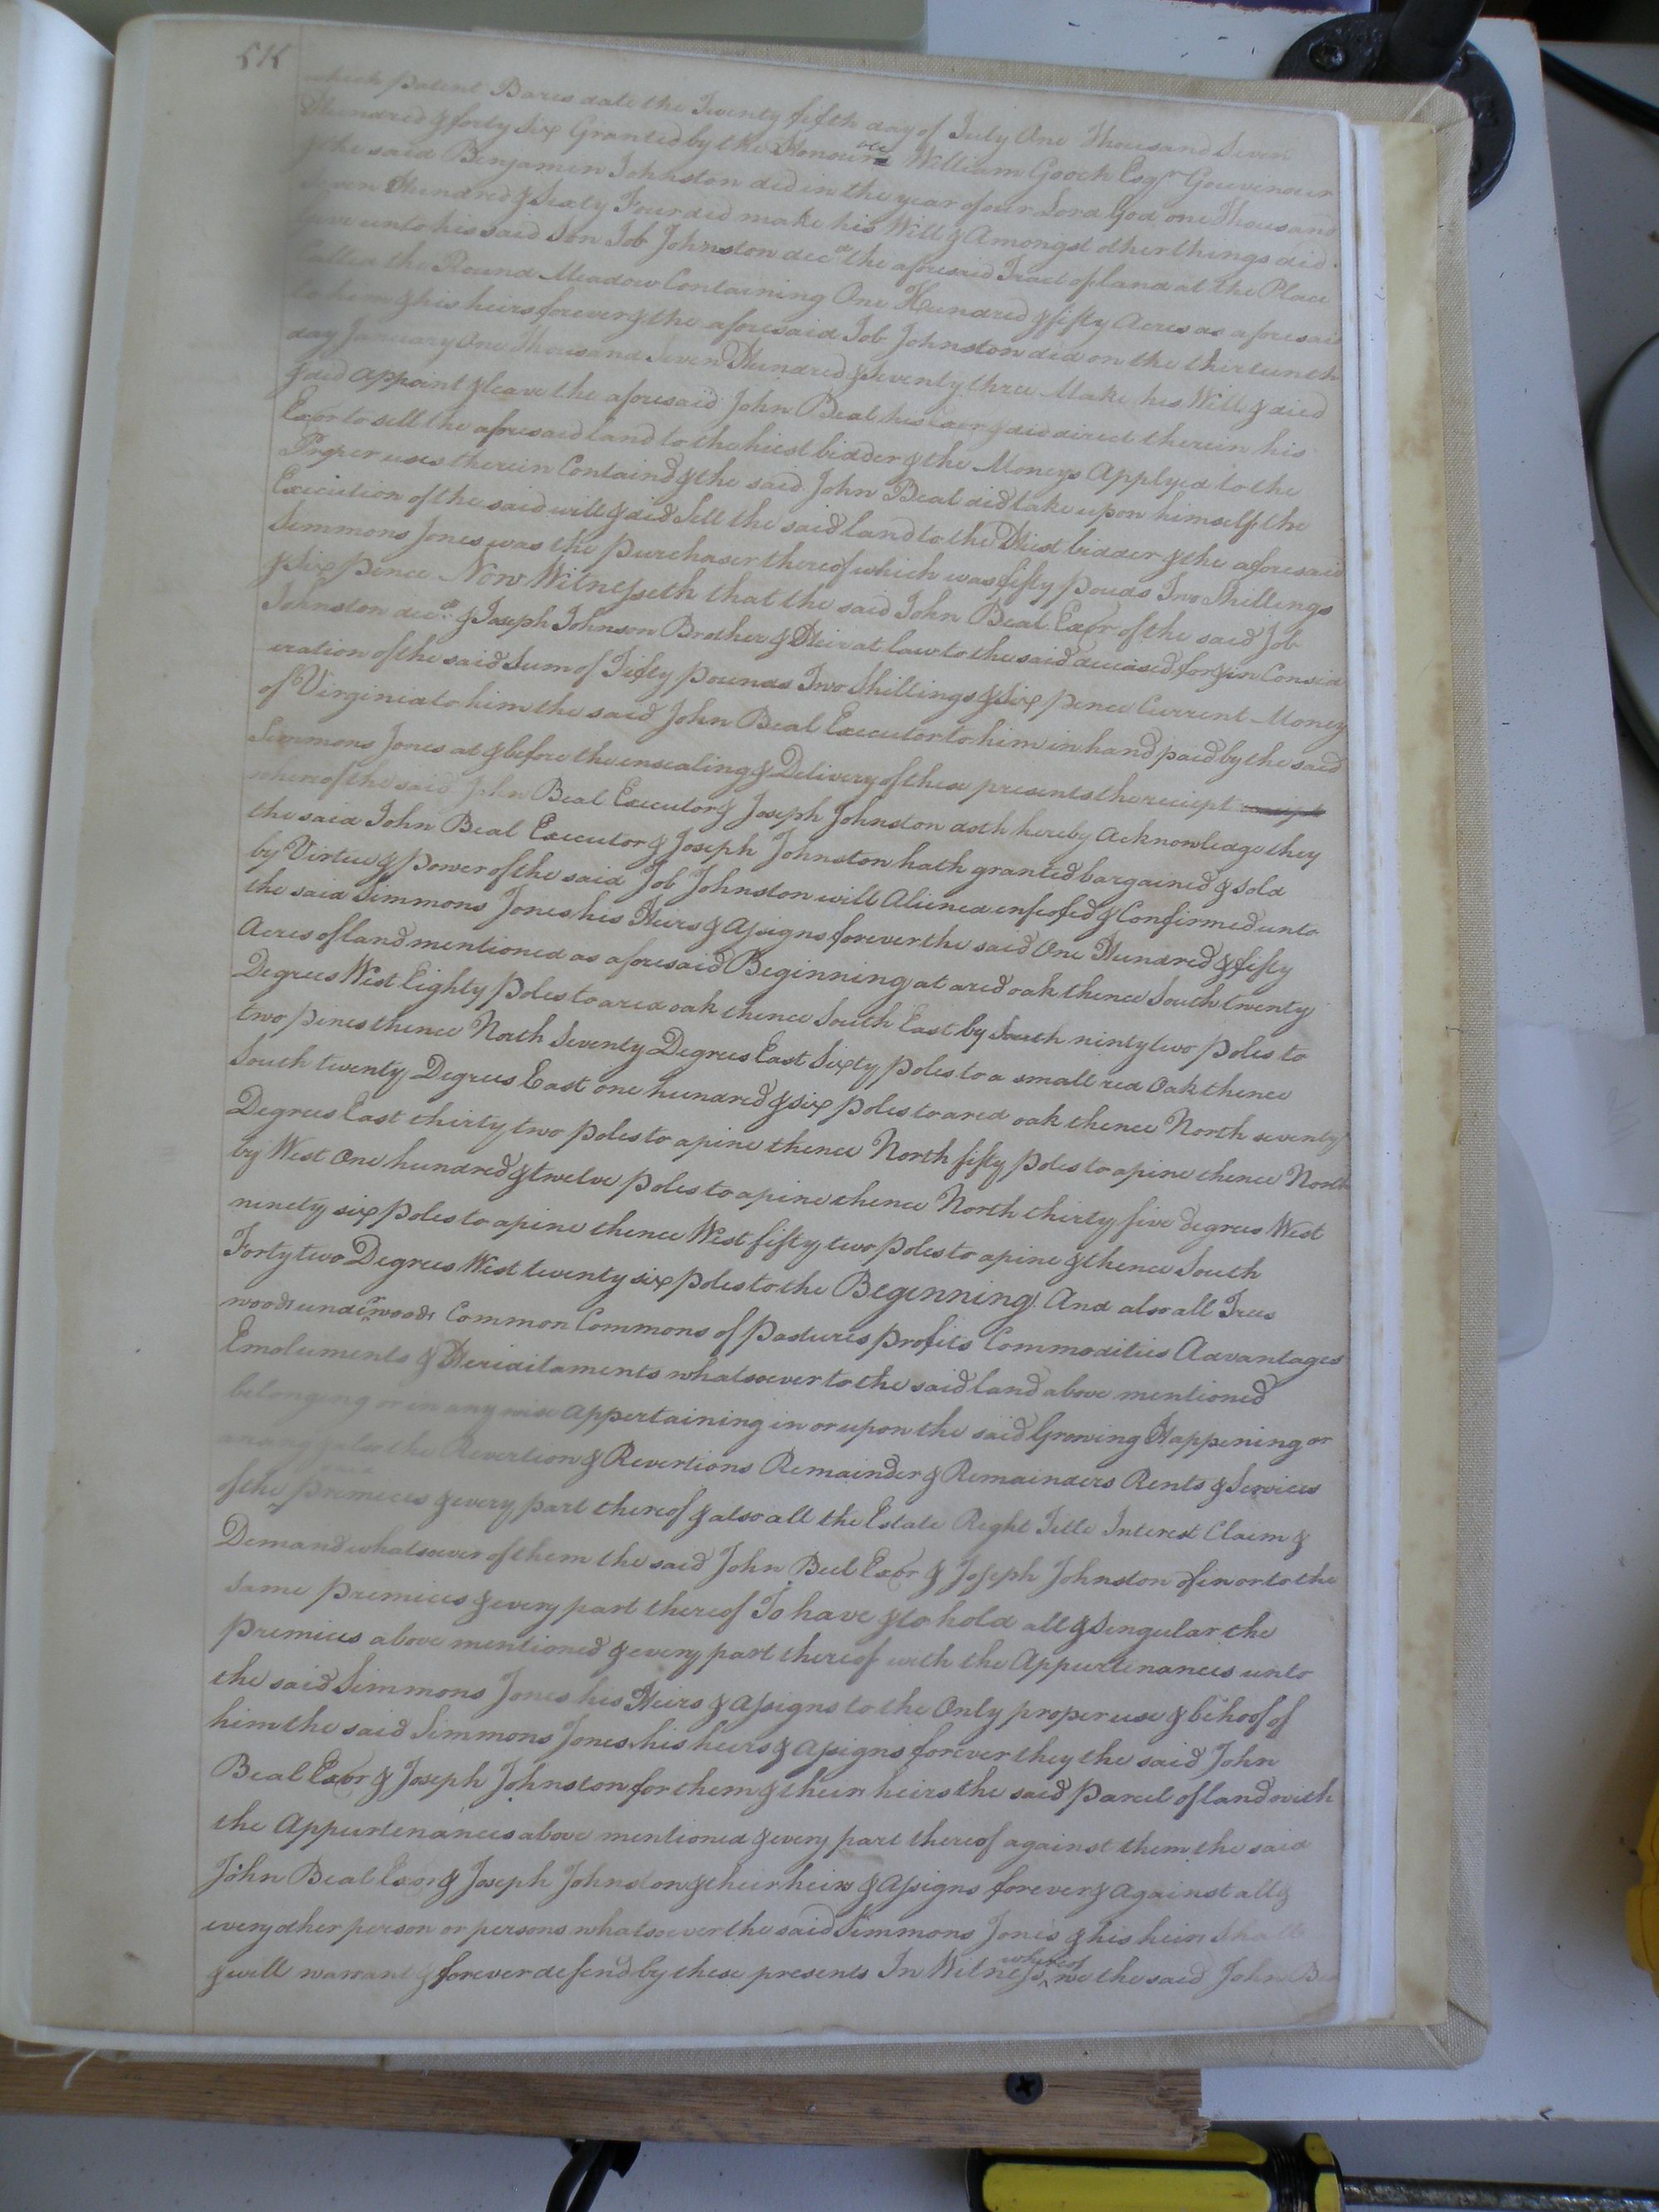 which patent Bares date the Twenty fifth day of July One Thousand Seven
Hundred & forty Six Granted by the Honourble William Gooch Esqr Gouvinour
& the said Benjamin Johnston did in the year of our Lord God one Thousand
Seven Hundred & Sixty Four did make his Will & Amongst other things did
give unto his said Son Job Johnston decd the aforesaid Tract of land at the Place
Called the Round Meadow Containing One Hundred & fifty Acres as aforesaid
to him & his heirs forever & the aforesaid Job Johnston did on the thirteenth
day January One Thousand Seven Hundred & Seventy three Make his Will & died
& did appoint & leave the aforesaid John Beal his Exor & did direct therein his
Exor to sell the aforesaid land to the hiest bidder & the Moneys Applyed to the
Proper uses therein Containd & the said John Beal did take upon himself the
Execution of the said will & did Sell the said land to the Hiest bidder & the aforesaid
Simmons Jones was the purchaser thereof which was fifty pouds Two Shillings
& Six pence Now Witnesseth that the said John Beal Exor of the said Job
Johnston decd & Joseph Johnson Brother & Heir at law to the said deceased for & in Consid
eration of the said Sum of Fifty pounds Two Shillings & Six pence Current Money
of Virginia to him the said John Beal Executor to him in hand paid by the said
Simmons Jones at & before the ensealing & Delivery of these presents the reciept
whereof the said John Beal Executor & Joseph Johnston doth hereby Acknowledge they
the said John Beal Executor & Joseph Johnston hath granted bargained & sold
by Virtue & power of the said Job Johnston will Aliened enfeofed & Confirmed unto
the said Simmons Jones his Heirs & Assigns forever the said One Hundred & fifty
Acres of land mentioned as aforesaid Beginning at a red oak thence South twenty
Degrees West Eighty poles to a red oak thence South East by South ninty two poles to
two pines thence North Seventy Degrees East Sixty poles to a small red Oak thence
South twenty Degrees East one hundred & six poles to a red oak thence North seventy
Degrees East thirty two poles to a pine thence North fifty poles to a pine thence North
by West One hundred & twelve poles to a pine thence North thirty five degrees West
ninety six poles to a pine thence West fifty two poles to a pine & thence South
Forty two Degrees West twenty six poles to the Beginning. And also all Trees
woods underwoods Common Commons of pastures profits Commodities Advantages
Emoluments & Heriditaments whatsoever to the said land above mentioned
belonging or in any wise appertaining in or upon the said Growing Happening or
and also the Revertion & Revertions Remainder & Remainders Rents & Services
of the premices & every part thereof & also all the Estate Right Title Interest Claim &
Demand whatsoever of them the said John Beel Exor & Joseph Johnston of in or to the
same premices & every part thereof To have & to hold all & Singular the
premices above mentioned & every part thereof with the Appurtenances unto
the said Simmons Jones his Heirs & Assigns to the Only proper use & behoof of
him the said Simmons Jones his heirs & assigns forever they the said John
Beal Exor & Joseph Johnston for them & their heirs the said parcel of land with
the Appurtenances above mentioned & every part thereof against them the said
John Beal Exor & Joseph Johnston & their heirs & Assigns forever & Against all &
every other person or persons whatsoever the said Simmons Jones & his heirs Shall
& will warrant & forever defend by these presents In Witness whereof we the said John